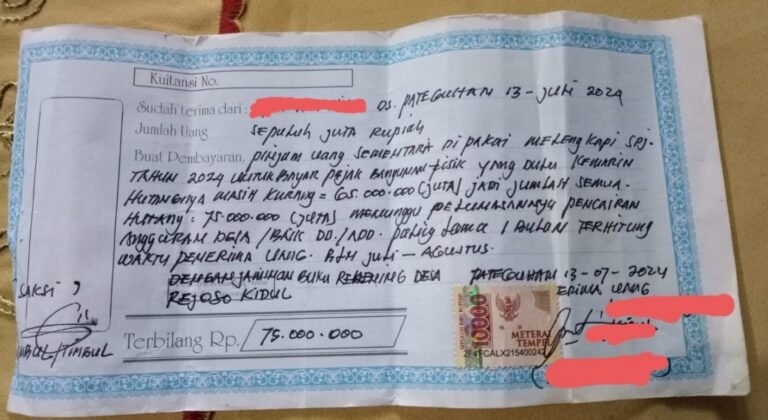 Kuitansi No.
Sudah terima dari : DS. PATEGUHAN 13-JULI 2024
Jumlah Uang SEPULUH JUTA RUPIAH
Buat Pembayaran, PINJAM UANG SEMENTARA DI PAKAI MELENGKAPI SPJ.
TAHUN 2024 UNTUK BAYAR PAJAK BANGUNAN FISIK YANG DULU KEMARIN
HUTANGNYA MASIH KURANG = 65.000.000 (JUTA) JADI JUMLAH SEMUA.
HUTANG = 75.000.000 (JUTA) MENUNGGU PELUNASANNYA PENCAIRAN
ANGGARAN DESA / BAIK DD./ADD. PALING LAMA 1 BULAN TERHITUNG
WAKTU PENERIMA UANG. BLN JULI - AGUSTUS.
DENGAN JAMINAN BUKU REKENING DESA
REJOSO KIDUL
PATEGUHAN 13-07-2024
ERIMA UANG
SAKSI 2
/TIMBUL
Terbilang Rp. 75.000.000
10000
METERAI
TEMPEL
2F4FCALX215400242